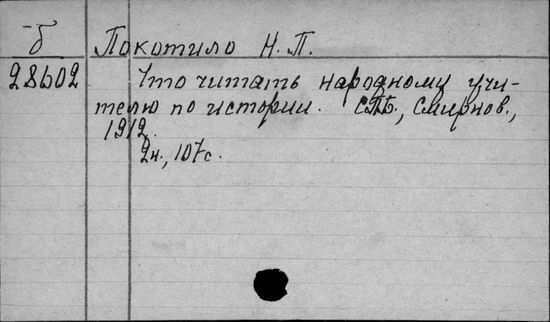 б Покотило Н. П.
28602 Что читать народному учи-
телю по истории. СПБ, Смирнов.,
1912.
2н., 107с.